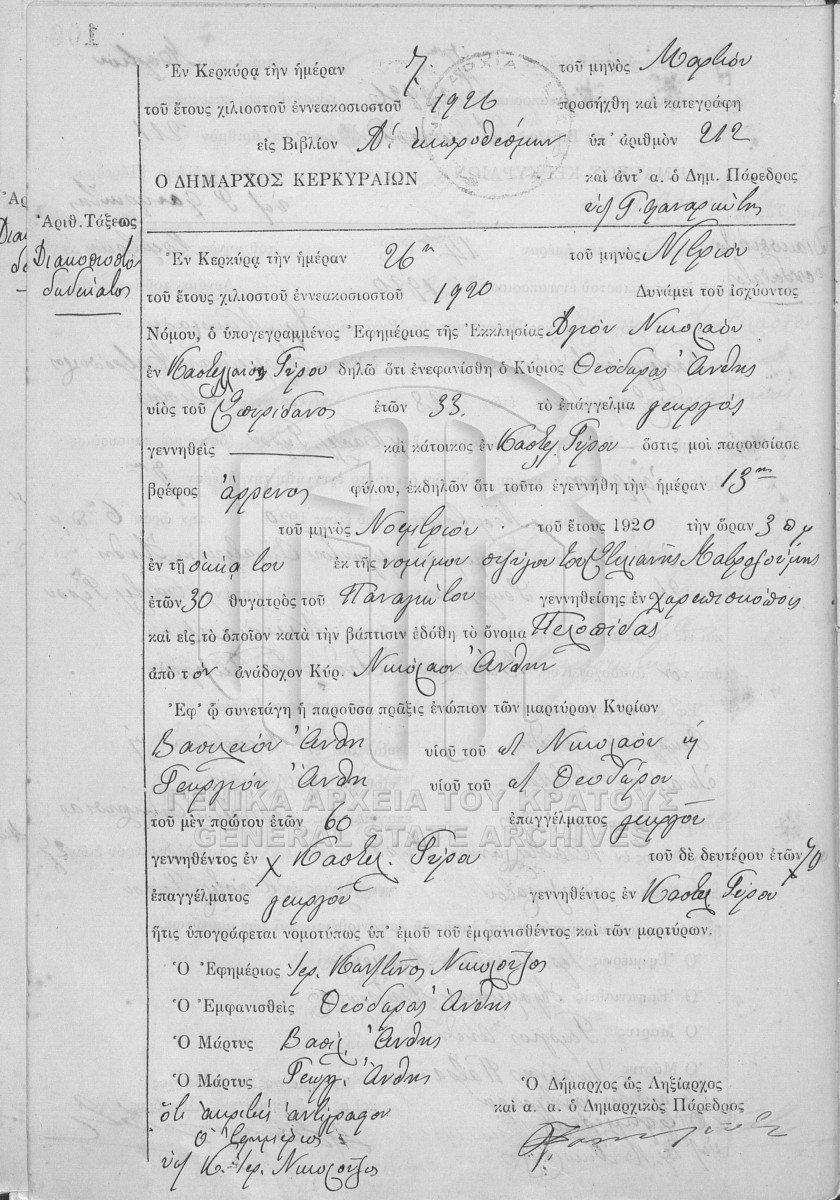 Ἐν Κερκύρᾳ τὴν ἡμέραν 7 τοῦ μηνὸς Μαρτίου
τοῦ ἔτους χιλιοστοῦ ἐννεακοσιοστοῦ 1926 προσήχθη καὶ κατεγράφη
εἰς Βιβλίον Α΄. ἐκπροθέσμων ὑπ᾽ ἀριθμὸν 212
Ο ΔΗΜΑΡΧΟΣ ΚΕΡΚΥΡΑΙΩΝ καὶ ἀντ᾽ α. ὁ Δημ. Πάρεδρος
Ἀριθ. Τάξεως
Διακόσιοστὸν
δωδέκατος
Ἐν Κερκύρᾳ τὴν ἡμέραν 26η τοῦ μηνὸς Νβρίου
τοῦ ἔτους χιλιοστοῦ ἐννεακοσιοστοῦ 1920 Δυνάμει τοῦ ἰσχύοντος
Νόμου, ὁ ὑπογεγραμμένος Ἐφημέριος τῆς Ἐκκλησίας Ἁγίου Νικολάου
ἐν Καστελλάνοις Γύρου δηλῶ ὅτι ἐνεφανίσθη ὁ Κύριος Θεόδωρος Ἄνθης
υἱὸς τοῦ Σπυρίδωνος ἐτῶν 33 τὸ ἐπάγγελμα γεωργός
γεννηθεὶς καὶ κάτοικος ἐν Καστελ. Γύρου ὅστις μοὶ παρουσίασε
βρέφος ἄρρενος φύλου, ἐκδηλῶν ὅτι τοῦτο ἐγεννήθη τὴν ἡμέραν 13ην
τοῦ μηνὸς Νοεμβρίου τοῦ ἔτους 1920 τὴν ὥραν 3 π.μ
ἐν τῇ οἰκίᾳ του ἐκ τῆς νομίμου συζύγου του Στυλιανῆς Μαυρολούμης
ἐτῶν 30 θυγατρὸς τοῦ Παναγιώτου γεννηθείσης ἐν Χωρεπισκόποις
καὶ εἰς τὸ ὁποῖον κατὰ τὴν βάπτισιν ἐδόθη τὸ ὄνομα Πελοπίδας
ἀπὸ τὸν ἀνάδοχον Κύρ. Νικόλαον Ἄνθην
Ἐφ᾽ ᾧ συνετάγη ἡ παροῦσα πρᾶξις ἐνώπιον τῶν μαρτύρων Κυρίων
Βασιλείου Ἄνθη υἱοῦ τοῦ Νικολάου
Γεωργίου Ἄνθη υἱοῦ τοῦ Θεοδώρου
ΓΕΝΙΚΑ ΑΡΧΕΙΑ ΤΟΥ ΚΡΑΤΟΥΣ
τοῦ μὲν πρώτου ἐτῶν 60 ἐπαγγέλματος γεωργοῦ
GENERAL STATE ARCHIVES
γεννηθέντος ἐν Καστελ. Γύρου τοῦ δὲ δευτέρου ἐτῶν 70
ἐπαγγέλματος γεωργοῦ γεννηθέντος ἐν Καστελ. Γύρου
ἥτις ὑπογράφεται νομοτύπως ὑπ᾽ ἐμοῦ τοῦ ἐμφανισθέντος καὶ τῶν μαρτύρων.
Ὁ Ἐφημέριος Ἱερ. Κωνστῖνος
Ὁ Ἐμφανισθεὶς Θεόδωρος Ἄνθης
Ὁ Μάρτυς Βασίλ. Ἄνθης
Ὁ Μάρτυς Γεώργ. Ἄνθης
Ὁ Δήμαρχος ὡς Ληξίαρχος
καὶ α. α. ὁ Δημαρχικὸς Πάρεδρος
ὅτι ἀκριβὲς ἀντίγραφον
Ὁ Ἐφημέριος